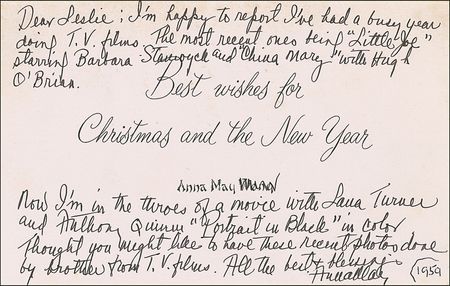 Dear Leslie; I'm happy to report I've had a busy year
doing T.V. films. The most recent ones being "Little Joe"
starring Barbara Stanwyck and "China Mary" with Hugh
O'Brian.
Best wishes for
Christmas and the New Year
Anna May Wong
Now I'm in the throes of a movie with Lana Turner
and Anthony Quinn "Portrait in Black" in color
Thought you might like to have these recent photos done
by brother from T.V. films. All the best & blessings
Anna May
1959